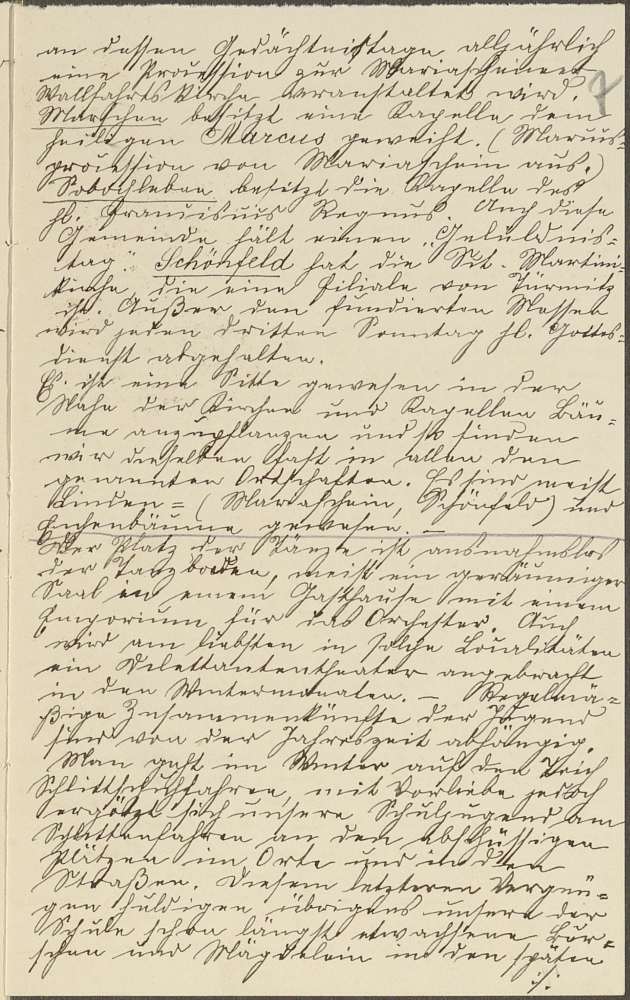 an dessen Gedächtnistage alljährlich
eine Prozession zur Mariascheiner
Wallfahrtskirche veranstaltet wird.
Marschen besitzt eine Kapelle, dem
heiligen Marcus geweiht. (Marcus=
procession von Mariaschein aus.)
Sobochleben besitzt die Kapelle des
hl. Franciscus Regnus. Auch diese
Gemeinde hält einen „Gelübdnis=
tag." Schönfeld hat die Sct. Martini=
kirche, die eine Filiale von Türmitz
ist. Außer den fundierten Messen
wird jeden dritten Sonntag hl. Gottes=
dienst abgehalten.
Es ist eine Sitte gewesen in der
Nähe der Kirchen und Kapellen Bäu=
me anzupflanzen und so finden
wir dieselben fast in allen den
genannten Ortschaften. Es sind meist
Linden= (Mariaschein, Schönfeld) und
Eichenbäume gewesen. —
Der Platz der Tänze ist ausnahmslos
der Tanzboden, meist ein geräumiger
Saal in einem Gasthause mit einem
Emporium für das Orchester. Auch
wird am liebsten in solche Localitäten
ein Dilettantentheater angebracht
in den Wintermonaten. — Regelmä=
ßige Zusammenkünfte der Jugend
sind von der Jahreszeit abhängig.
Man geht im Winter auf den Teich
Schlittschuhfahren, mit Vorliebe jedoch
ergötzt sich unsere Schuljugend am
Schlittenfahren an den abschüssigen
Plätzen im Orte und in den
Straßen. Diesem letzteren Vergnü=
gen huldigen übrigens unsere der
Schule schon längst erwachsene Bur=
schen und Mägdelein in den späten
./.